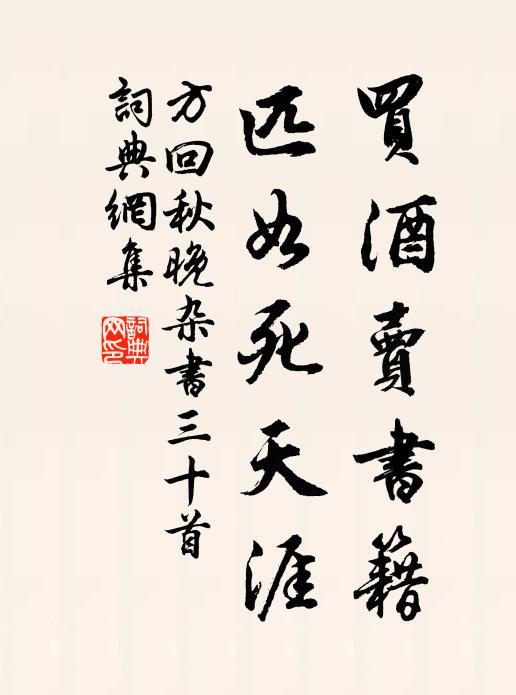 買酒賣書籍
匹如死天涯
方回秋晚杂書三十首
詞典網集
詞典网印